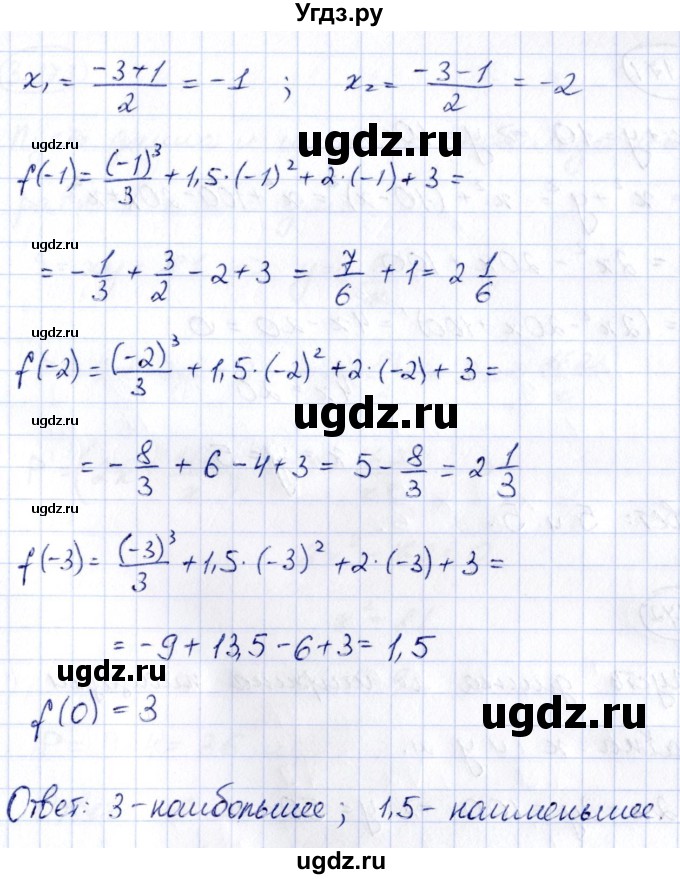 Угдз.ру
x₁ = (-3+1)/2 = -1 ; x₂ = (-3-1)/2 = -2
ugdz.ru ugdz.ru
f(-1) = (-1)³/3 + 1,5·(-1)² + 2·(-1) + 3 =
ugdz.ru
= -1/3 + 3/2 - 2 + 3 = 7/6 + 1 = 2 1/6
ugdz.ru
f(-2) = (-2)³/3 + 1,5·(-2)² + 2·(-2) + 3 =
ugdz.ru ugdz.ru
= -8/3 + 6 - 4 + 3 = 5 - 8/3 = 2 1/3
ugdz.ru
f(-3) = (-3)³/3 + 1,5·(-3)² + 2·(-3) + 3 =
= -9 + 13,5 - 6 + 3 = 1,5
ugdz.ru
f(0) = 3
ugdz.ru
Ответ: 3 - наибольшее; 1,5 - наименьшее.
ugdz.ru